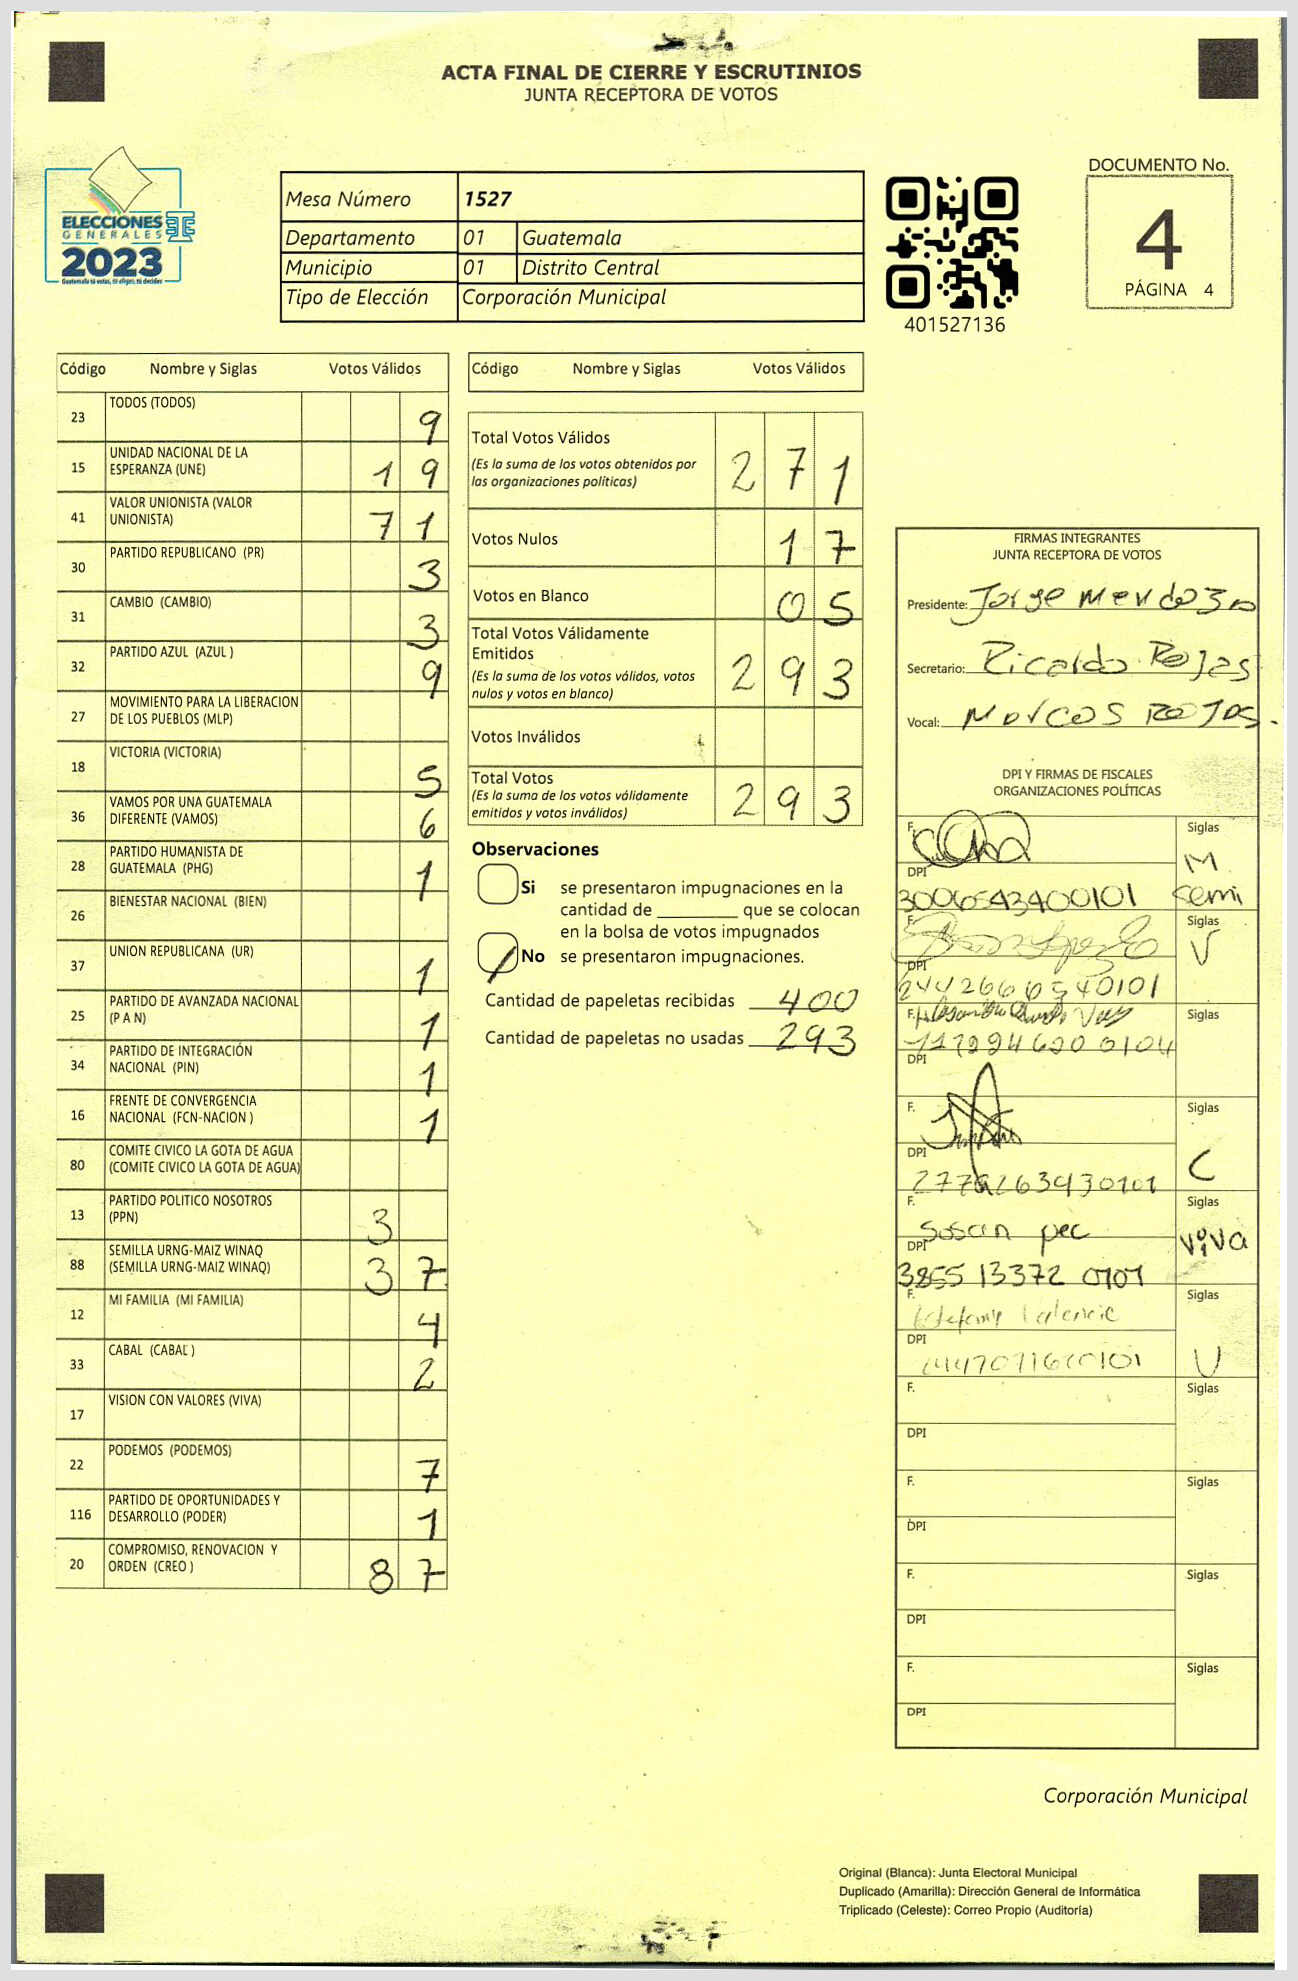 ACTA FINAL DE CIERRE Y ESCRUTINIOS
JUNTA RECEPTORA DE VOTOS
ELECCIONES
GENERALES
2023
Guatemala tú votas, tú eliges, tú decides
Mesa Número 1527
Departamento 01 Guatemala
Municipio 01 Distrito Central
Tipo de Elección Corporación Municipal
401527136
DOCUMENTO No.
4
PÁGINA 4
Código Nombre y Siglas Votos Válidos
23 TODOS (TODOS) 9
15 UNIDAD NACIONAL DE LA
ESPERANZA (UNE) 19
41 VALOR UNIONISTA (VALOR
UNIONISTA) 71
30 PARTIDO REPUBLICANO (PR) 3
31 CAMBIO (CAMBIO) 3
32 PARTIDO AZUL (AZUL ) 9
27 MOVIMIENTO PARA LA LIBERACION
DE LOS PUEBLOS (MLP)
18 VICTORIA (VICTORIA) 5
36 VAMOS POR UNA GUATEMALA
DIFERENTE (VAMOS) 6
28 PARTIDO HUMANISTA DE
GUATEMALA (PHG) 1
26 BIENESTAR NACIONAL (BIEN)
37 UNION REPUBLICANA (UR) 1
25 PARTIDO DE AVANZADA NACIONAL
(P A N) 1
34 PARTIDO DE INTEGRACIÓN
NACIONAL (PIN) 1
16 FRENTE DE CONVERGENCIA
NACIONAL (FCN-NACION ) 1
80 COMITE CIVICO LA GOTA DE AGUA
(COMITE CIVICO LA GOTA DE AGUA)
13 PARTIDO POLITICO NOSOTROS
(PPN) 3
88 SEMILLA URNG-MAIZ WINAQ
(SEMILLA URNG-MAIZ WINAQ) 37
12 MI FAMILIA (MI FAMILIA) 4
33 CABAL (CABAL ) 2
17 VISION CON VALORES (VIVA)
22 PODEMOS (PODEMOS) 7
116 PARTIDO DE OPORTUNIDADES Y
DESARROLLO (PODER) 1
20 COMPROMISO, RENOVACION Y
ORDEN (CREO ) 87
Código Nombre y Siglas Votos Válidos
Total Votos Válidos
(Es la suma de los votos obtenidos por
las organizaciones políticas) 271
Votos Nulos 17
Votos en Blanco 05
Total Votos Válidamente
Emitidos
(Es la suma de los votos válidos, votos
nulos y votos en blanco) 293
Votos Inválidos
Total Votos
(Es la suma de los votos válidamente
emitidos y votos inválidos) 293
Observaciones
Si se presentaron impugnaciones en la
cantidad de ________ que se colocan
en la bolsa de votos impugnados
No se presentaron impugnaciones.
Cantidad de papeletas recibidas 400
Cantidad de papeletas no usadas 293
FIRMAS INTEGRANTES
JUNTA RECEPTORA DE VOTOS
Presidente: Jorge Mendoza
Secretario: Ricardo Rojas
Vocal: Marcos Rojas.
DPI Y FIRMAS DE FISCALES
ORGANIZACIONES POLÍTICAS
F. Siglas
M
DPI
3006543400101 Semi
F. Siglas
V
DPI
F. Siglas
DPI
F. Siglas
DPI
C
F. Siglas
Susan pec
DPI
VIVA
3855 13372 0101
F. Siglas
DPI
U
F. Siglas
DPI
F. Siglas
DPI
F. Siglas
DPI
F. Siglas
DPI
Corporación Municipal
Original (Blanca): Junta Electoral Municipal
Duplicado (Amarilla): Dirección General de Informática
Triplicado (Celeste): Correo Propio (Auditoría)